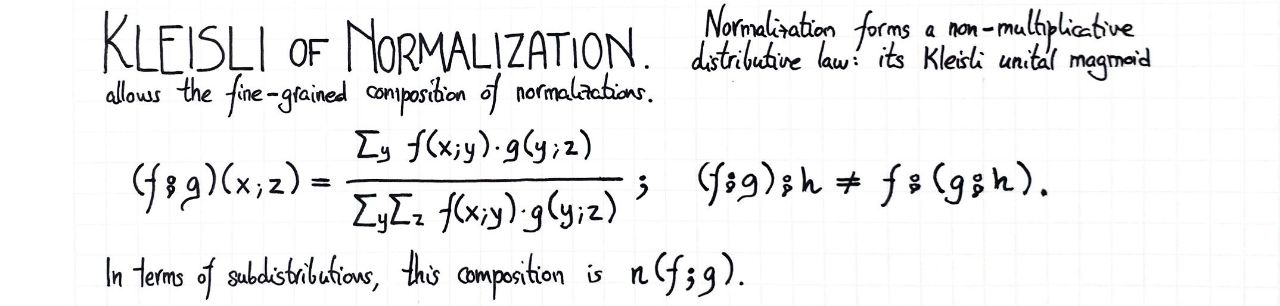 KLEISLI OF NORMALIZATION.
Normalization forms a non-multiplicative
distributive law: its Kleisli unital magmoid
allows the fine-grained composition of normalizations.
(f⨾g)(x;z) = Σy f(x;y)·g(y;z) / ΣyΣz f(x;y)·g(y;z) ; (f⨾g)⨾h ≠ f⨾(g⨾h).
In terms of subdistributions, this composition is n(f;g).